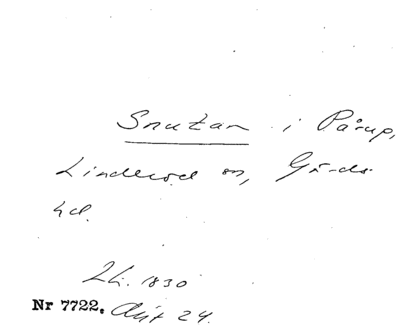 Snutan i Pårup,
Linderöd sn, Gärds
hd.
Lh. 1830
Nr 7722. Akt 24.